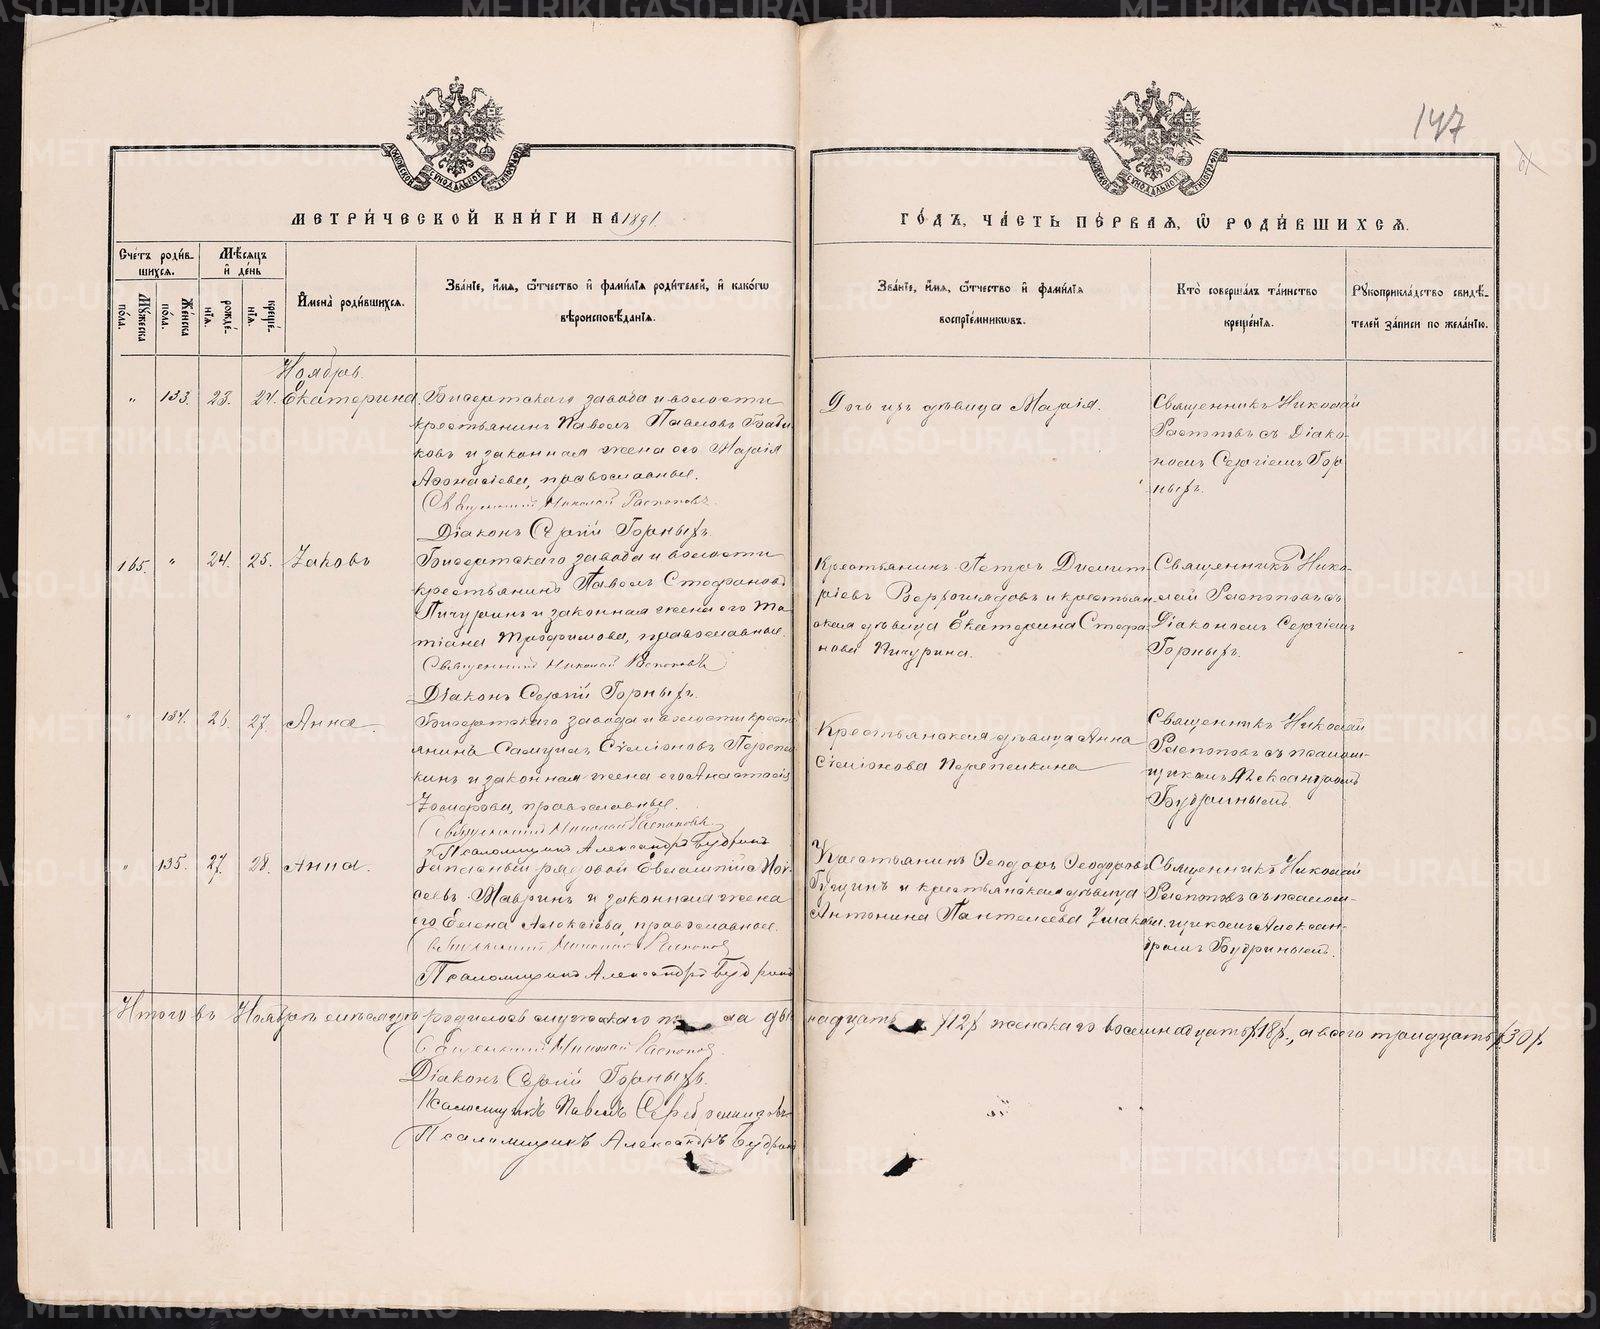 147
МЕТРИ́ЧЕСКОЙ КНИ́ГИ НА 1891.
ГО́ДЪ, ЧА́СТЬ ПЕ́РВАЯ, Ѽ РОДИ́ВШИХСѦ.
Сче́тъ роди́в-
шихся.
Мѣ́сяцъ
и́ де́нь
Мꙋ́жеска
по́ла.
Же́нска
по́ла.
рожде́-
нїя.
креще́-
нїя.
И҆мена̀ роди́вшихся.
Зва́нїе, и҆́мя, ѻ҆́тчество и҆ фами́лїя роди́телей, и҆ како́гѡ
вѣроисповѣ́данїя.
Зва́нїе, и҆́мя, ѻ҆́тчество и҆ фами́лїя
воспрїе́мникѡвъ.
Кто̀ соверша́лъ та́инство
креще́нїя.
Рꙋкоприкла́дство свидѣ́-
телей за́писи по жела́нїю.
Ноябрь.
„ 133. 23. 24. Екатерина. Бисертскаго завода и волости
крестьянинъ Павелъ Павловъ Баби
ковъ и законная жена его Марія
Афонасіева, православные.
Священникъ Николай Распоповъ.
Діаконъ Сергій Горныхъ.
Дочь ихъ дѣвица Марія.
Священникъ Николай
съ Діако-
номъ Сергіемъ Гор
ныхъ.
165. „ 24. 25. Іаковъ Бисертскаго завода и волости
крестьянинъ Павелъ Стефановъ
Пичугинъ и законная жена его Та-
тіана Трофимова, православные.
Священникъ Николай Распоповъ
Діаконъ Сергій Горныхъ.
Крестьянинъ Петръ Димит
ріевъ и крестьян
ская дѣвица Екатерина Стефа
нова
Священникъ Нико-
лай Распоповъ съ
Діакономъ Сергіемъ
Горныхъ.
„ 134. 26. 27. Анна. Бисертскаго завода и волости крестья
янинъ Самуилъ Сѵмеоновъ Перепел
кинъ и законная жена его Анастасія
Іосифова, православные.
Священникъ Николай Распоповъ
Псаломщикъ Александръ Будринъ
Крестьянская дѣвица Анна
Сѵмеонова Перепелкина
Священникъ Николай
Распоповъ съ псалом-
щикомъ Александромъ
Будринымъ.
„ 135. 27. 28. Анна. Запасный рядовой Евлампій Мои-
сеевъ Мавринъ и законная жена
его Елена Алексіева, православные.
Священникъ Николай Распоповъ
Псаломщикъ Александръ Будринъ
Крестьянинъ Ѳеодоръ Ѳеодоровъ
и крестьянская дѣвица
Антонина Пантелеева
Священникъ Николай
Распоповъ съ псалом-
щикомъ Алексан-
дромъ Будринымъ.
Итого въ Ноябрѣ мѣсяцѣ родилось мужескаго ла двѣ надцать /12/ женскаго восемнадцать /18/, а всего тридцать /30/.
Священникъ Николай Распоповъ.
Діаконъ Сергій Горныхъ.
Псаломщикъ Павелъ Серебренниковъ
Псаломщикъ Александръ Будринъ
METRIKI.GASO-URAL.RU